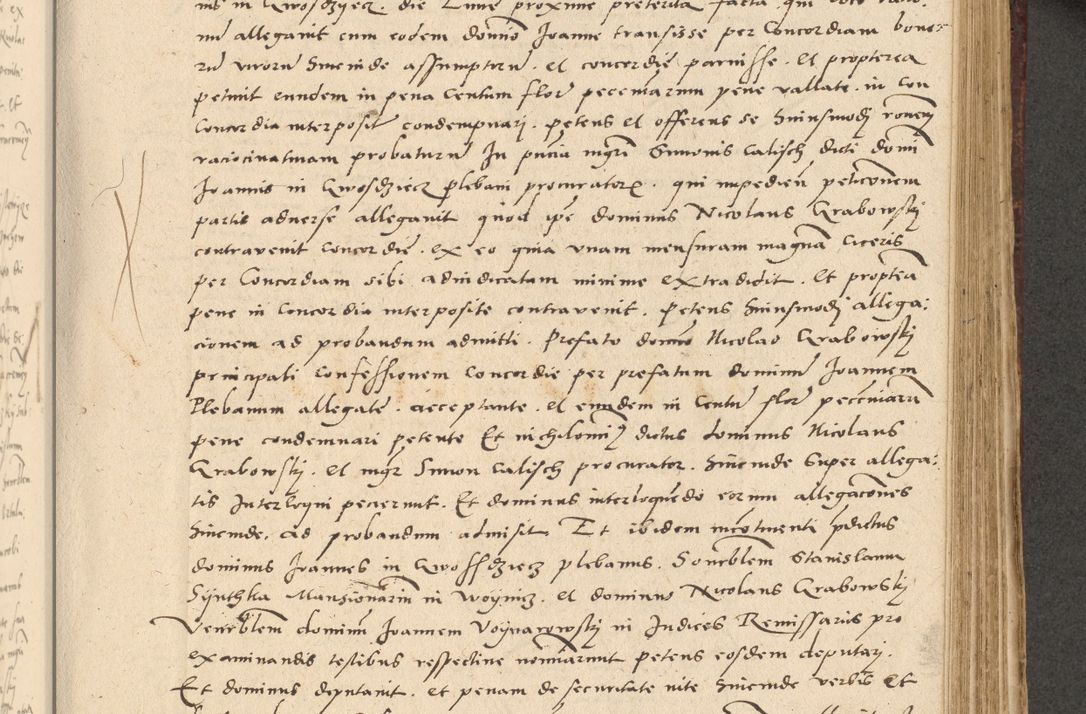 nis in Gwosdzyecz. die Lune proxime preterita facta. qui
mi allegavit cum eodem domino Joanne transisse per Concordiam bono-
rum virorum hincinde assumptorum. et concordie parvisse. et propterea
petivit eundem in pena Centum flor pecuniarum pene vallate. in con
Concordia interposit condempnari. petens et offerens se huiusmodi rationem
raciocinativam probaturum In pncia mgri Simonis Calisch dicti domi
Joannis in Gwosdziecz plebani procuratoris. qui impedien peticionem
partis adverse allegavit quod ipse dominus Nicolaus Grabowskj
contravenit Concordie. ex eo quia unam mensuram magnam Ciceris
per Concordiam sibi adiudicatam minime extradidit. Et propterea
pene in Concordia interposite contravenit. petens huiusmodi allega:
cionem ad probandum admitti. Prefato domino Nicolao Grabowskj
principali Confessionem Concordie per prefatum dominum Joannem
Plebanum allegate. acceptante. et eundem in Centum flor pecuniarum
pene condemnari petente Et nichilominus dictus dominus Nicolaus
Grabowskj. et mgr Simon Calisch procurator. hincinde super allega:
tis Interloqui pecierunt. Et dominus interloquendo eorum allegaciones
hincinde. ad probandum admisit Et ibidem incontinenti pdictus
dominus Joannes in Gwossdziecz plebanus. Honorblem Stanislaum
Synthka Mansionarium in Woynicz. et dominus Nicolaus Grabowskj
Venerblem dominum Joannem Voynarowskj in Iudices Remissarios pro
examinandis testibus respective nominarunt petens eosdem deputarj.
Et dominus deputavit. et penam de securitate vite hincinde verbis et